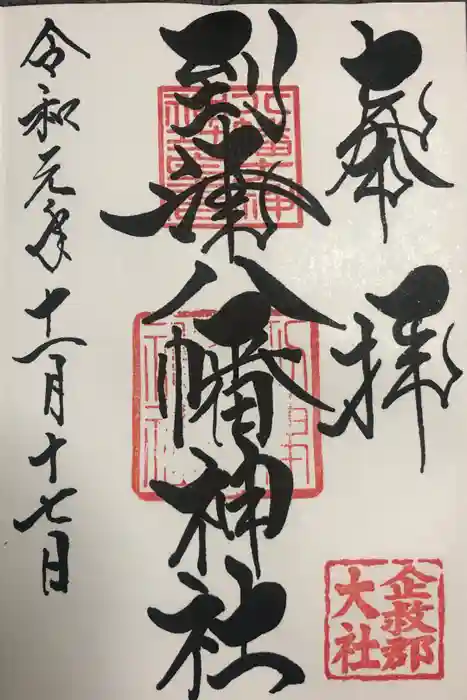 奉拝
到津八幡神社
令和元年十一月十七日
企救郡
大社